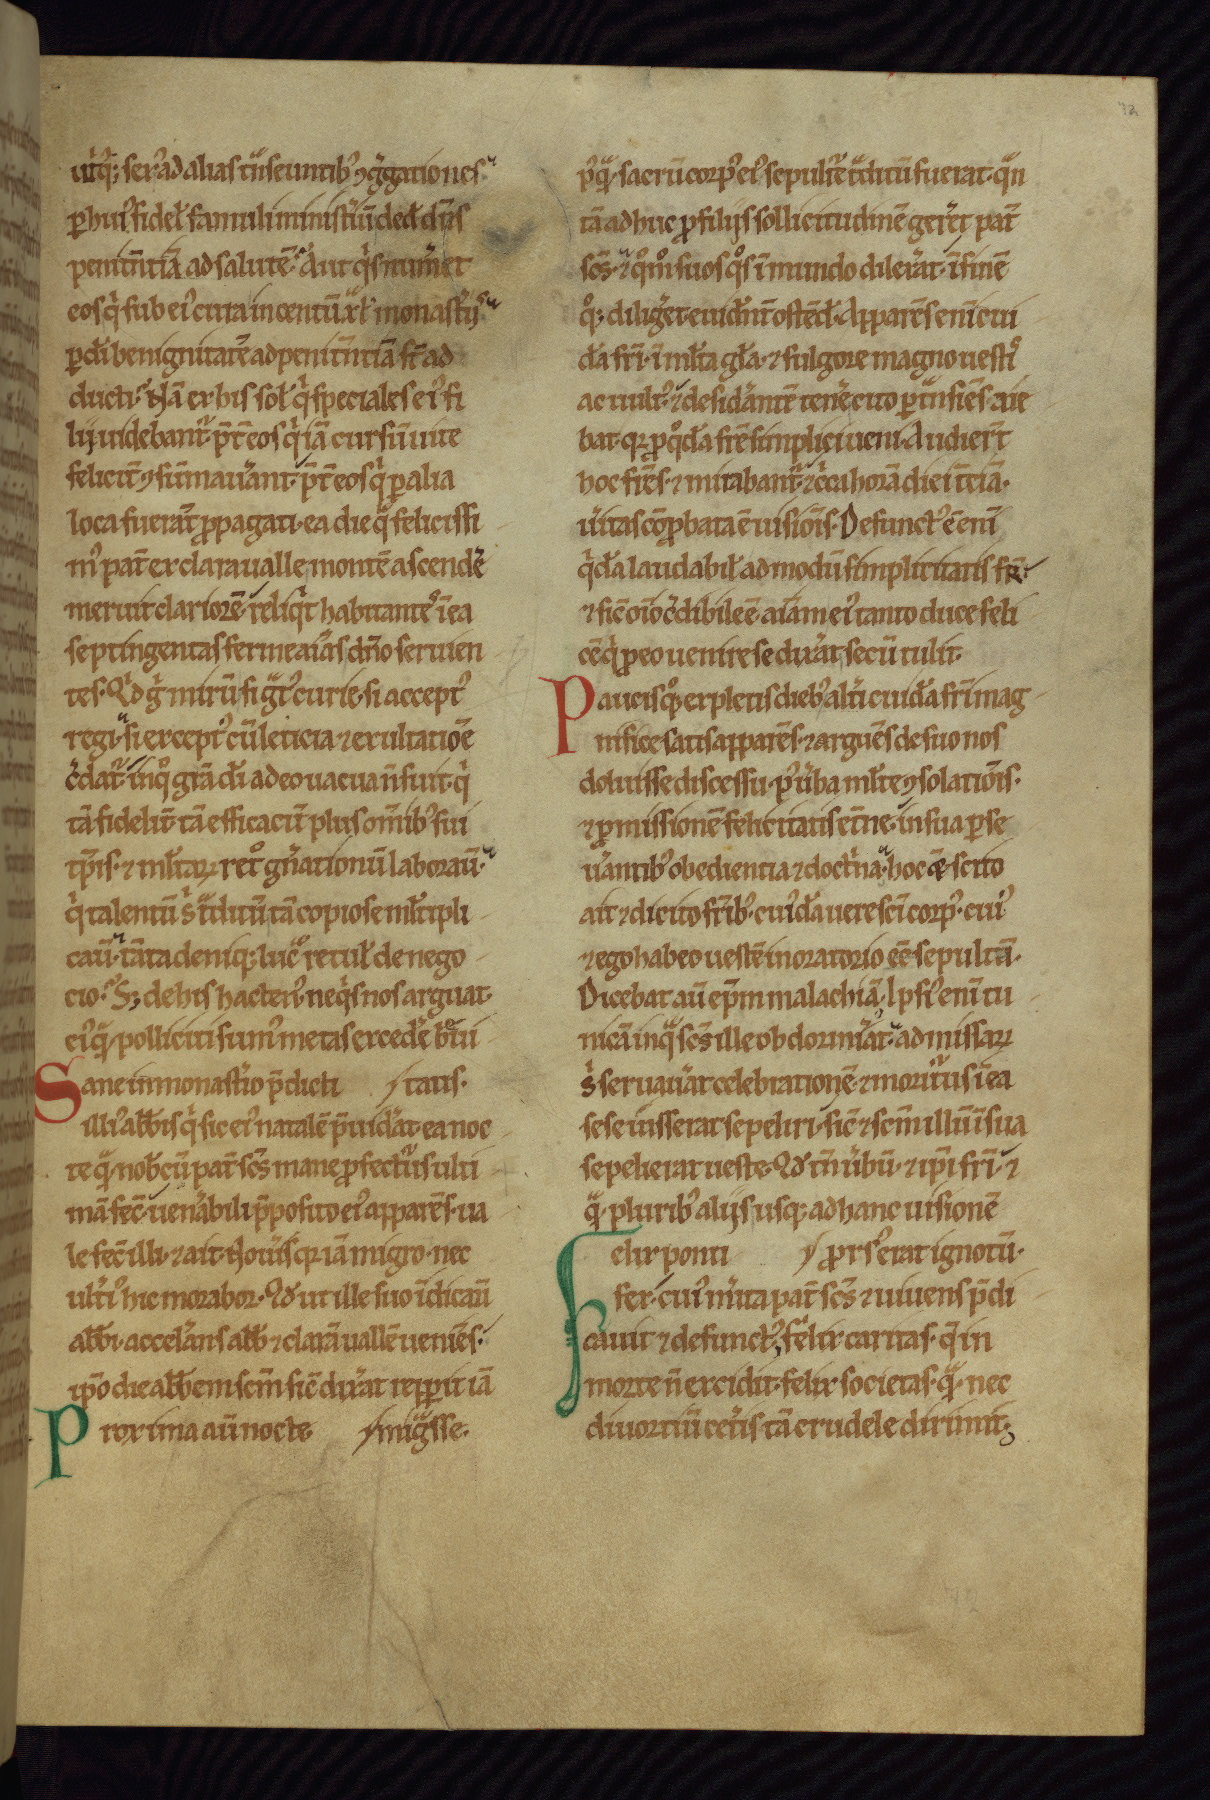 72
utq̇; ser̾ ad alias tͣnseuntib̾ ꝯg̾gationes.
ꝑ hui̾ fidel̾ famuli ministiũ ded̾ dñs
penitñtiã ad salutẽ. Aut qͥs numͣet
eos qͥ sub ei̾ cura in centũ xl̾ monast̾ijs
ꝑ dĩ benignitatẽ ad penitñtiã sͭ ad
ducti. Nã ex his sol̾ qͥ speciales ei̾ fi
lij uidebant̾. p̄t̾ eos qͥ iã cursũ uite
felicit̾ ꝯsũmauͣant. p̄t̾ eos qͥ ꝑ alia
loca fuerãt ꝓpagati. ea die qͣ felicissi
m̾ pat̾ ex claraualle montẽ ascendẽ
meruit clariorẽ. reliqͥt habitantes ĩ ea
septingentas ferme aĩas dño seruien
tes. Qͥd gͥ mirũ si gͣt̾ curie. si accept̾
regi. si except̾ cũ leticia ⁊ exultatiõe
c̾dat̾. in qͦ gr̃a dĩ adeo uacua ñ fuit. qͥ
tã fidelit̾ tã efficacit̾ plus om̃ib̾ sui
tp̃is. ⁊ ml̾taꝝ ret̾o gñationũ laborauͭ.
qͥ talentũ s̾ tͣditũ tã copiose ml̾tipli
cauͭ. tãta deniq; luc̾ retul̾ de nego
cio. S; de his hacten̾. ne qͥs nos arguat
ei̾ qͣ polliciti sum̾ metas excedẽ b̾ui
Sane in monast̾io p̃dicti / tatis.
illi̾ abb̃is qͥ sic ei̾ natalẽ p̃uidͣat. ea noc
te qͣ nob̾ cũ pat̾ scõ mane ꝓfectur̾ ulti
mã fec̾. uenͣabili p̃posito ei̾ apparẽs. ua
lefec̾ illi. ⁊ ait. Nou̾is qꝛ iã migro. nec
ult̾i̾ hic morabor. Qd̾ ut ille suo ĩdicauͭ
abb̃i. accelͣans abb̃ ⁊ clarã uallẽ ueniẽs.
ip̃o die abb̃em scm̃ sic̾ dixͣat repp̃it iã
Proxima aũ nocte / migͣsse.
p̾ qͣ sacrũ corp̾ ei̾ sepultͣe tͣditũ fuerat. qͣn
tã adhuc ꝓ filijs sollicitudinẽ gerͤet pat̾
scs̃. ⁊ qͦm̃ suos qͦs ĩ mundo dilexͣat. ĩ finẽ
qͦq; diligͤet. euidñt̾ ostẽd̾. Apparẽs eni cui
dã frĩ. ĩ ml̾ta gl̃a. ⁊ fulgore magno uesti̾
ac uult̾. ⁊ desidͣantẽ tenẽ cito ꝑtͣnsiẽs. aie
bat qꝛ ꝓ qͦdã frẽ simplici ueni. Audierͭt
hoc frẽs. ⁊ mirabant̾. ⁊ cͥca horã diei t̾ciã.
uͤitas cõꝓbata ẽ uisiõis. Defunct̾ ẽ enĩ
qͥdã laudabil̾ admodũ simplicitatis fr̃.
⁊ sic̾ oĩo cͤdibile ẽ. aĩam ei̾ tanto duce feli
cẽ qͥ ꝓ eo uenire se dixͣat. secũ tulit.
Paucis qͦq; expletis dieb̾ alt̾i cuidã frĩ mag
nifice satis apparẽs. ⁊ arguẽs de suo nos
doluisse discessu. p̾ uͤba ml̾te ꝯsolatiõis.
⁊ ꝓmissionẽ felicitatis et̾ne. in sua ꝑse
uͣantib̾ obedientia ⁊ doctͥna. hoc q̾ scito
ait ⁊ dicito frĩb̾. cui̾dã uere scĩ corp̾. cui̾
⁊ ego habeo uestẽ in oratorio eẽ sepultũ.
Dicebat aũ ep̃m malachiã. Ipsi̾ enĩ tu
nicã inqͣ scs̃ ille obdormiͣat. ad missaꝝ
s̾ seruauͣat celebrationẽ ⁊ moritur̾ ĩ ea
sese iusserat sepeliri. sic̾ ⁊ scm̃ illũ ĩ sua
sepelierat ueste. Qd̾ tñ uͤbũ. ⁊ ip̃i frĩ. ⁊
qͣ pluribꝰ alijs usq; ad hanc uisionẽ
Felix ponti / ꝓrs̾ erat ignotũ.
fex. cui̾ mͥita pat̾ scs̃ ⁊ uiuens p̃di
cauit ⁊ defunct̾. felix caritas. q̃ in
morte ñ excidit. felix societas. qͣ nec
diuortiũ cet̾is tã crudele dirimit;